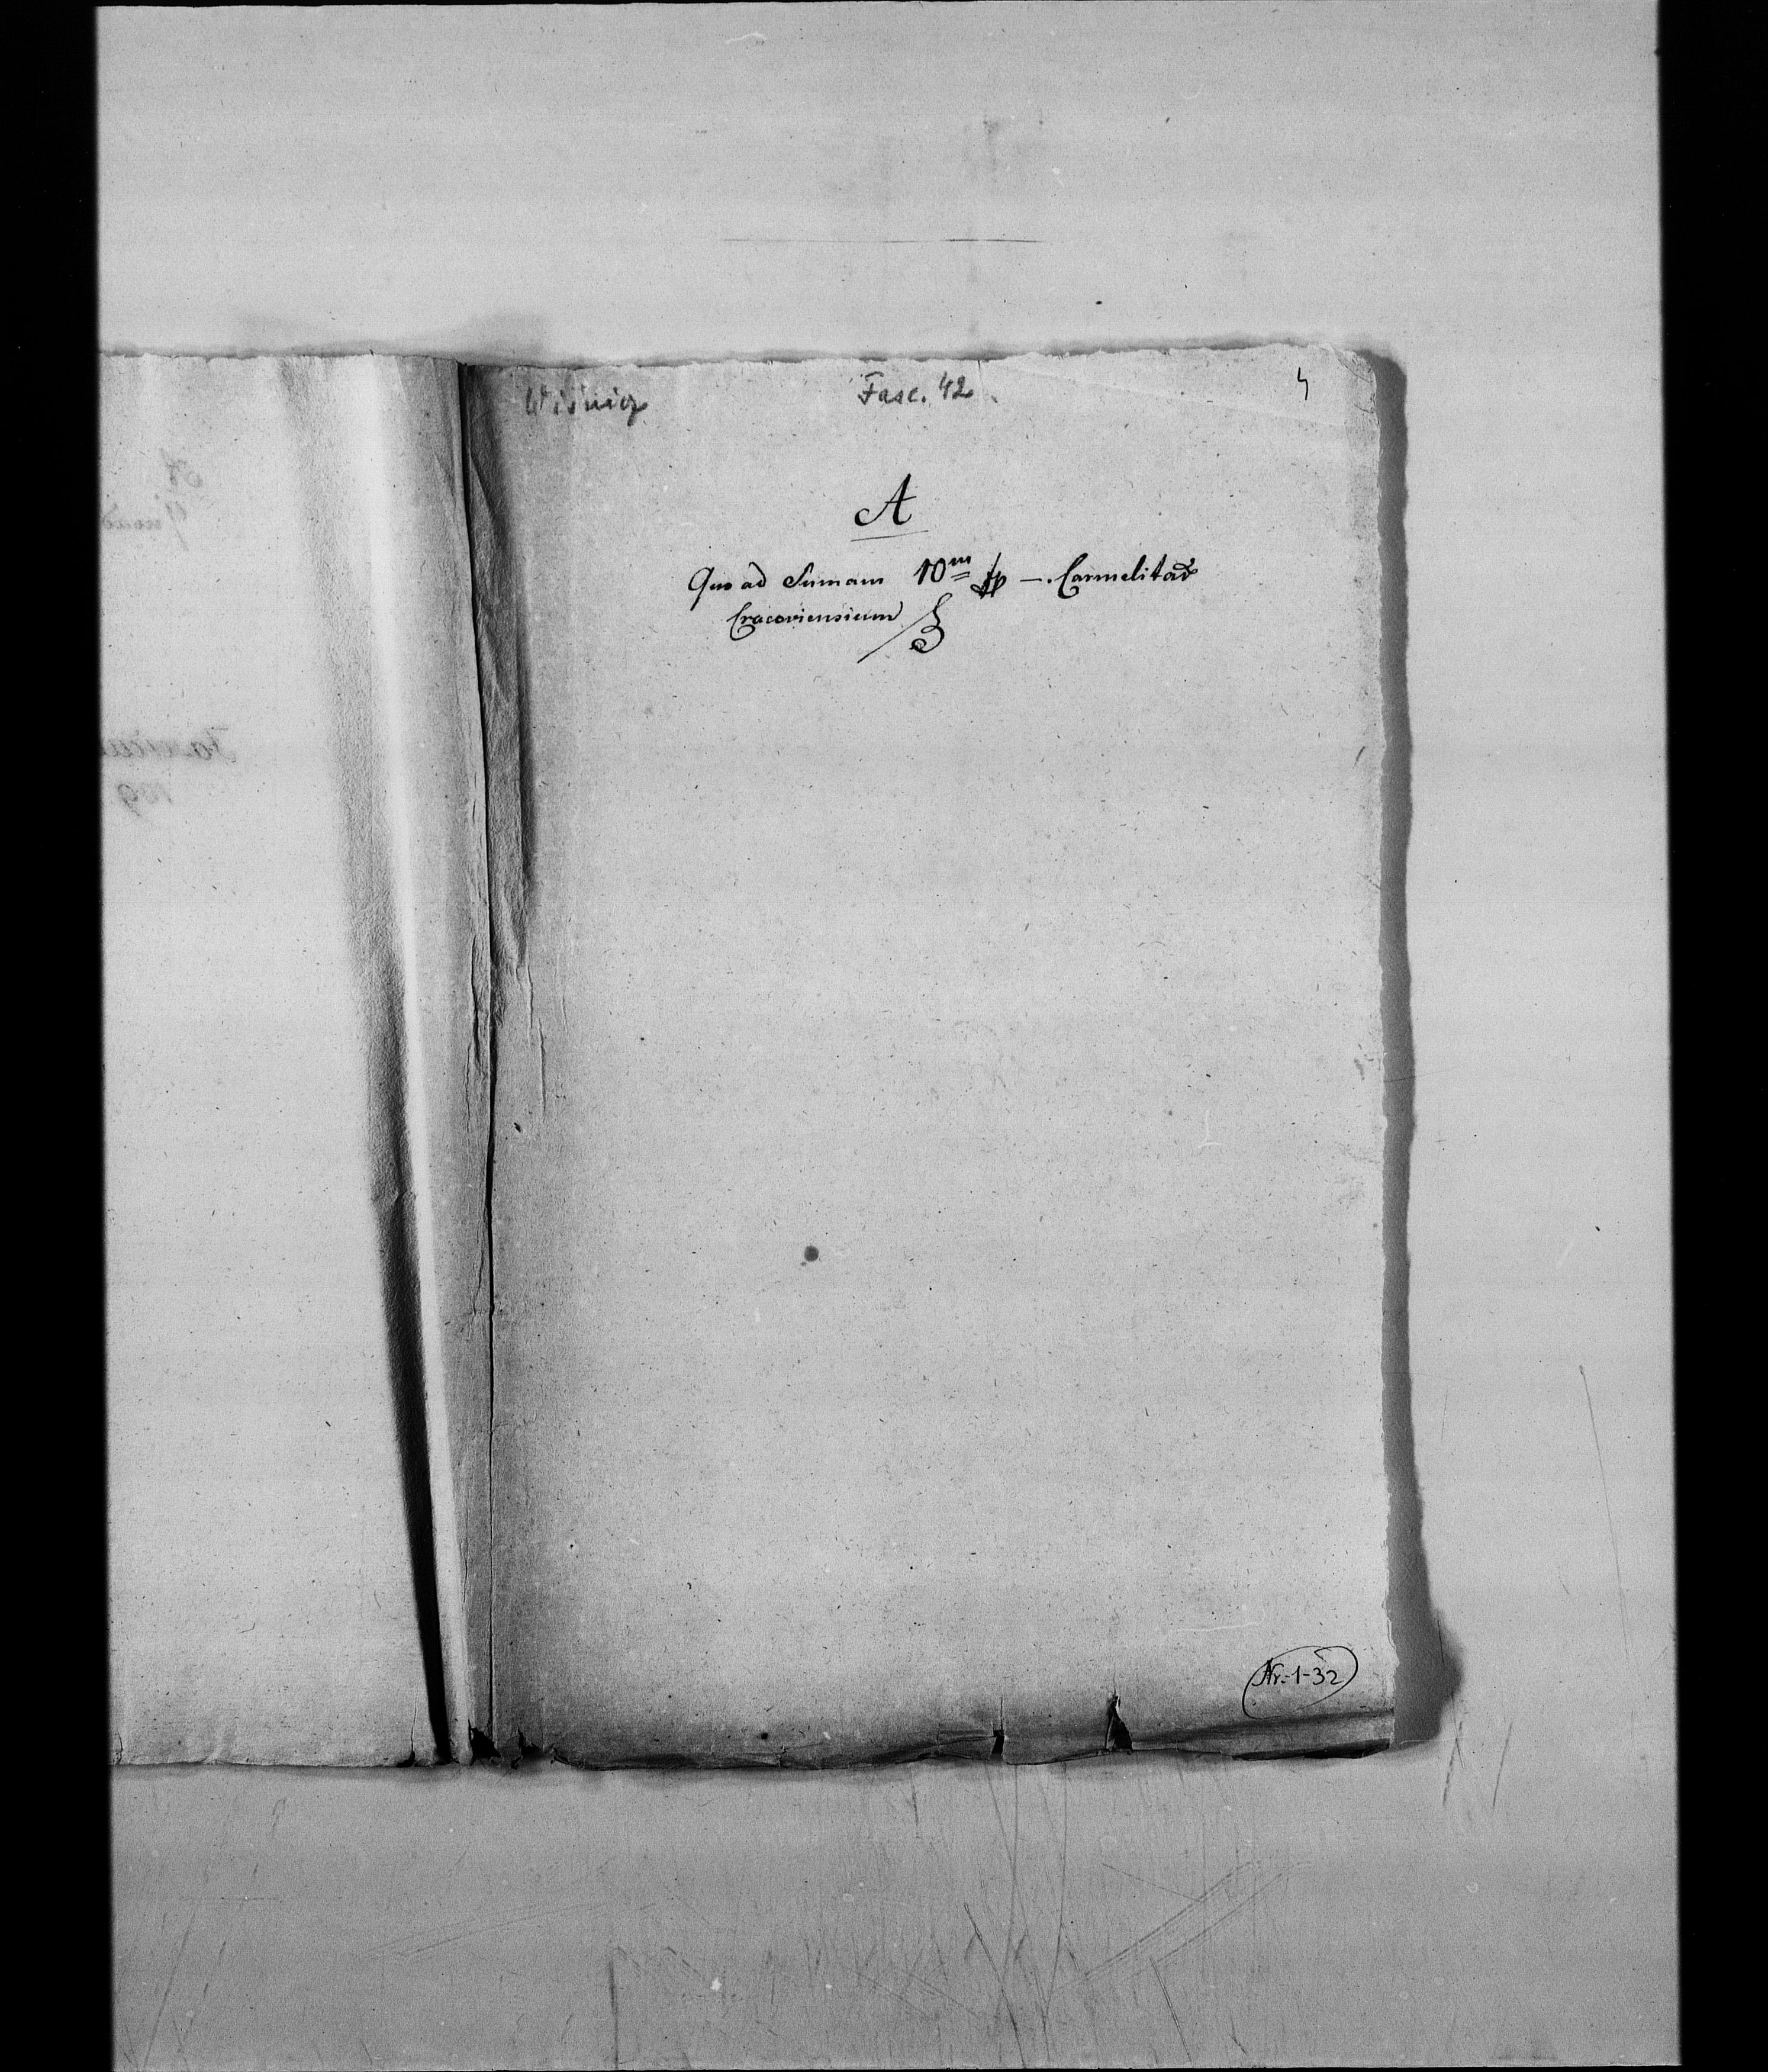 Wiśnicz Fasc. 42 4
A
Quo ad Sumam 10m fp —. Carmelitar
Cracoviensium
Nr. 1-32